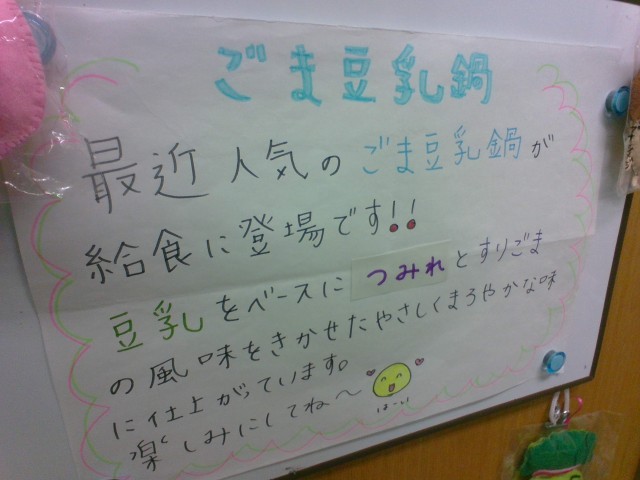 ごま豆乳鍋
最近人気のごま豆乳鍋が
給食に登場です!!
豆乳をベースにつみれとすりごま
の風味をきかせたやさしくまろやかな味
に仕上がっています。
楽しみにしてね〜
はーい